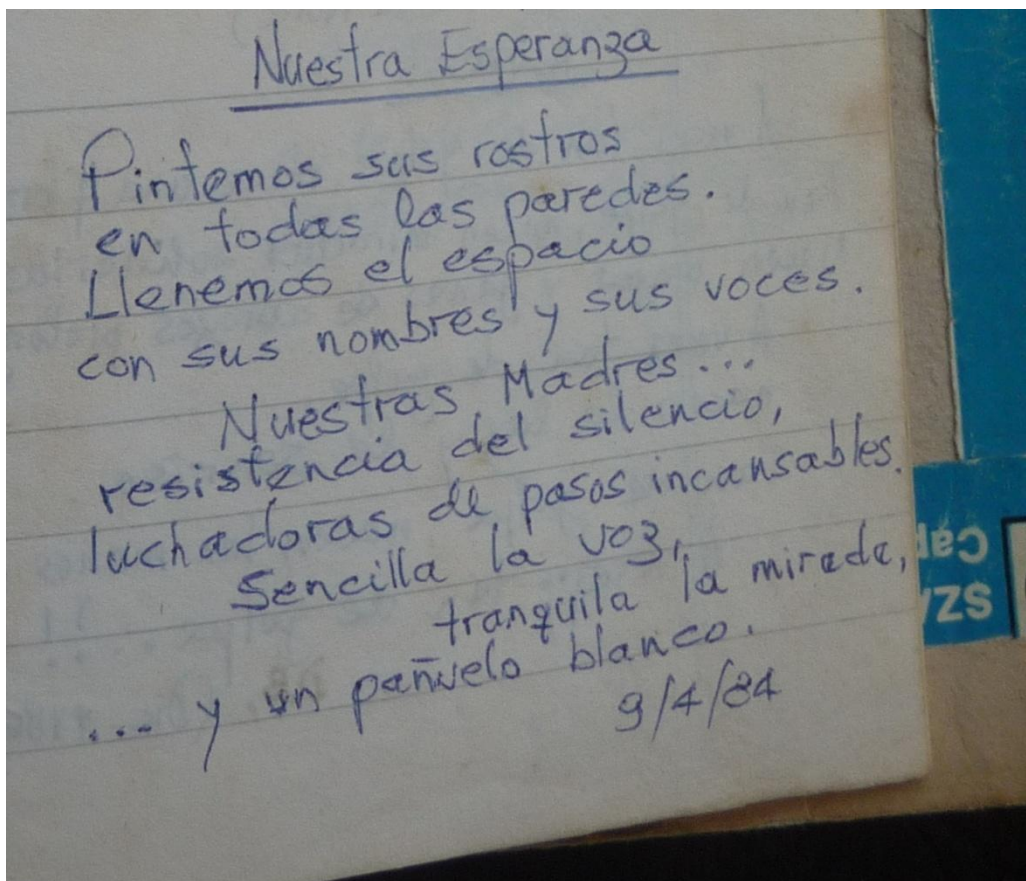 Nuestra Esperanza
Pintemos sus rostros
en todas las paredes.
Llenemos el espacio
con sus nombres y sus voces.
Nuestras Madres...
resistencia del silencio,
luchadoras de pasos incansables.
Sencilla la voz,
tranquila la mirada,
... y un pañuelo blanco.
9/4/84